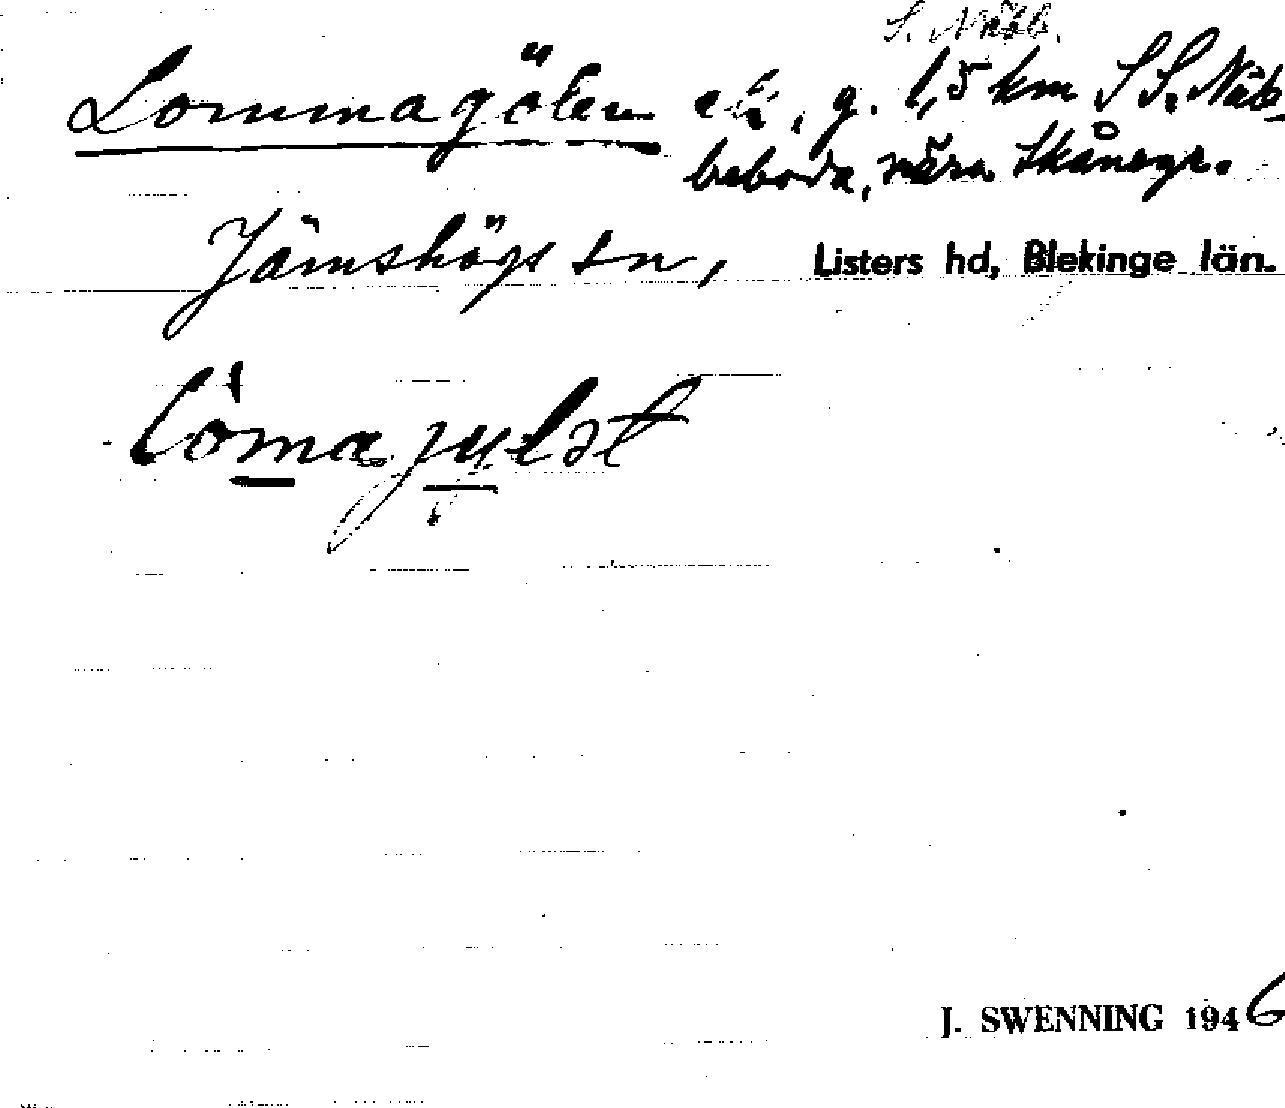 S. Näbb.
Lommagölen ek, g. 1,5 km S S. Näb-
beboda, nära Skånegr.
Jämshögs sn, Listers hd, Blekinge län.
J. SWENNING 1946